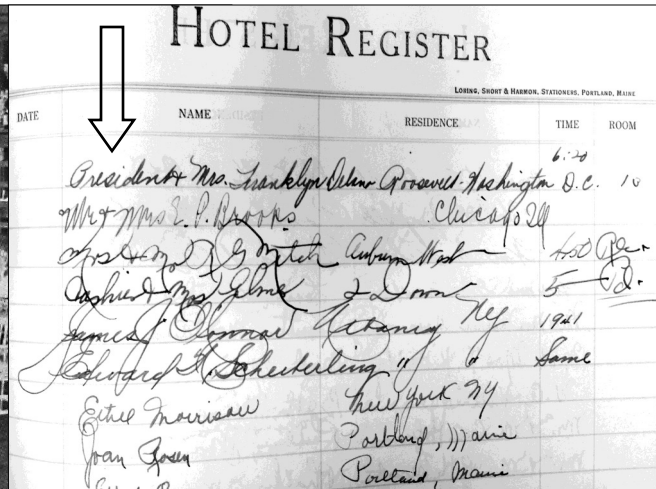 HOTEL REGISTER
LORING, SHORT & HARMON, STATIONERS, PORTLAND, MAINE
DATE NAME RESIDENCE TIME ROOM
6:20
President & Mrs. Franklyn Delano Roosevelt - Washington D.C. 10
Mr & Mrs E. P. Brooks Chicago Ill
Mrs & G Auburn 4.50
Cashier & Mrs 2 Down 5
James J O'Connor NY 1941
Edward Scheiberling " " Same
Ethel Morrison New York NY
Joan Rosen Portland, Maine
Portland, Maine